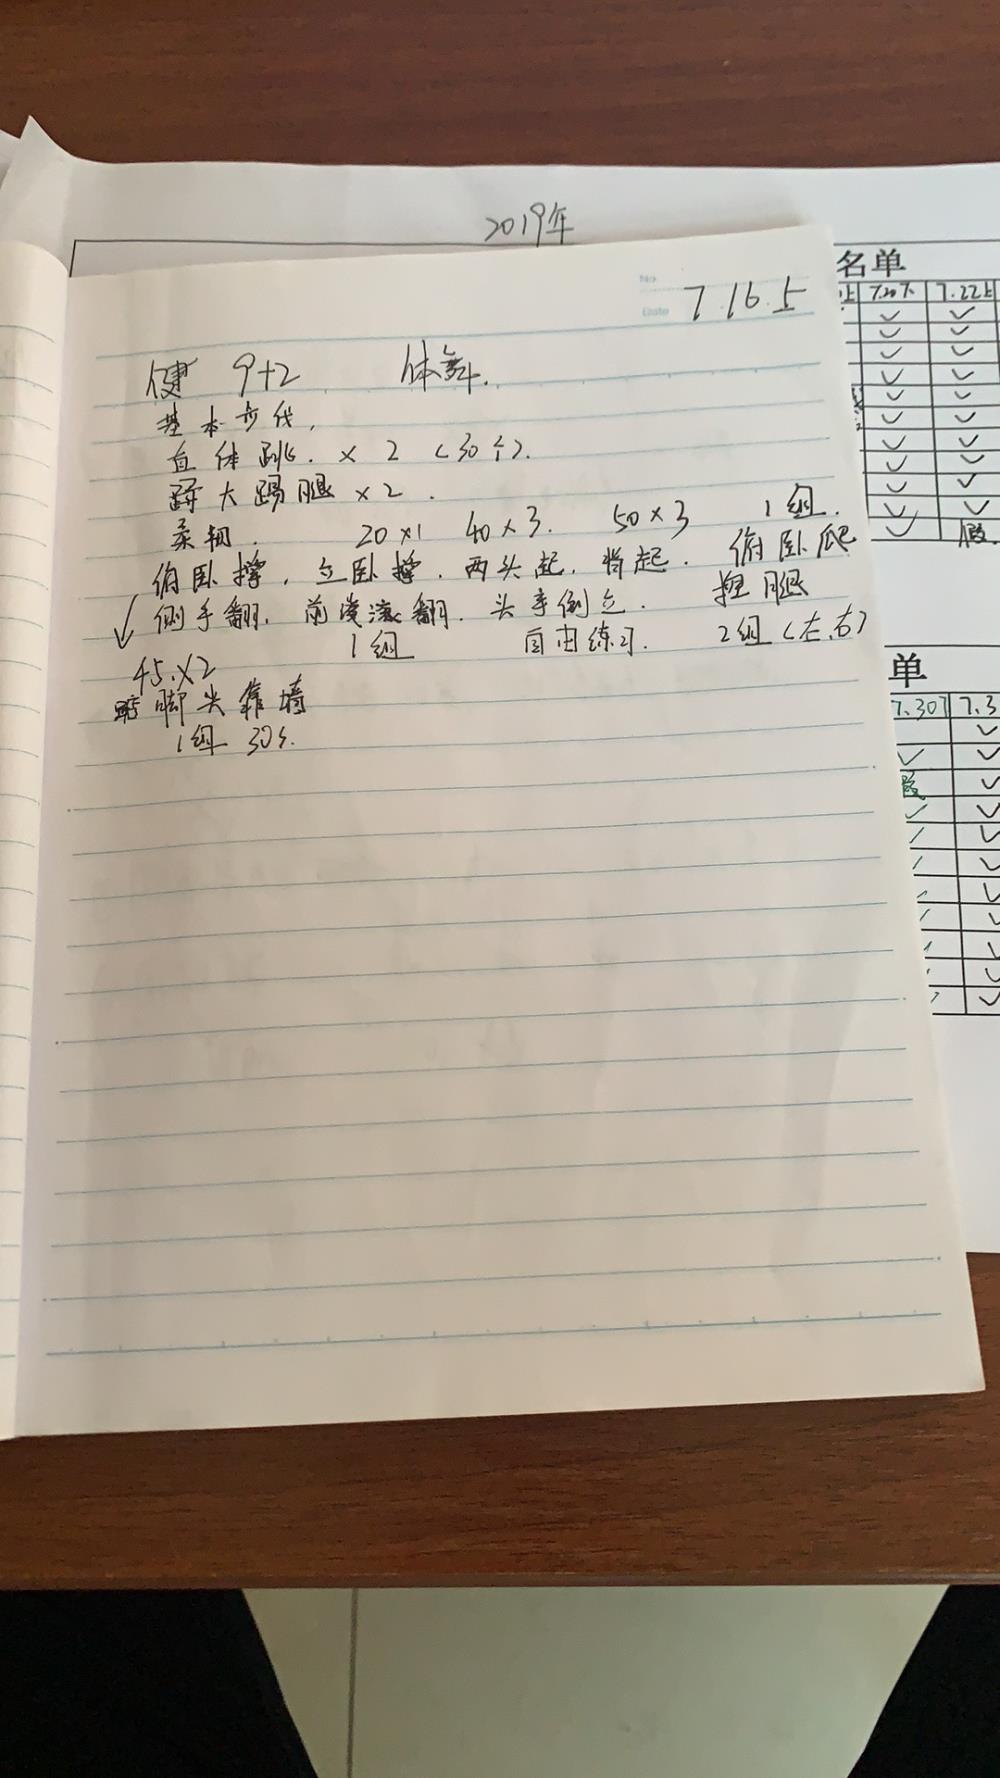 2019年
名单
上 7.20下 7.22上
假
No
Date 7.16.上
健 9+2 体舞.
基本步伐.
直体跳. × 2 (30个).
大踢腿 ×2.
柔韧. 20×1 40×3. 50×3 1组.
俯卧撑. 立卧撑. 两头起. 背起. 俯卧爬
侧手翻. 前滚翻. 头手倒立. 腿
1组 自由练习. 2组(左.右)
45.×2
脚尖靠墙
1组 30s.
单
7.30下 7.3
假